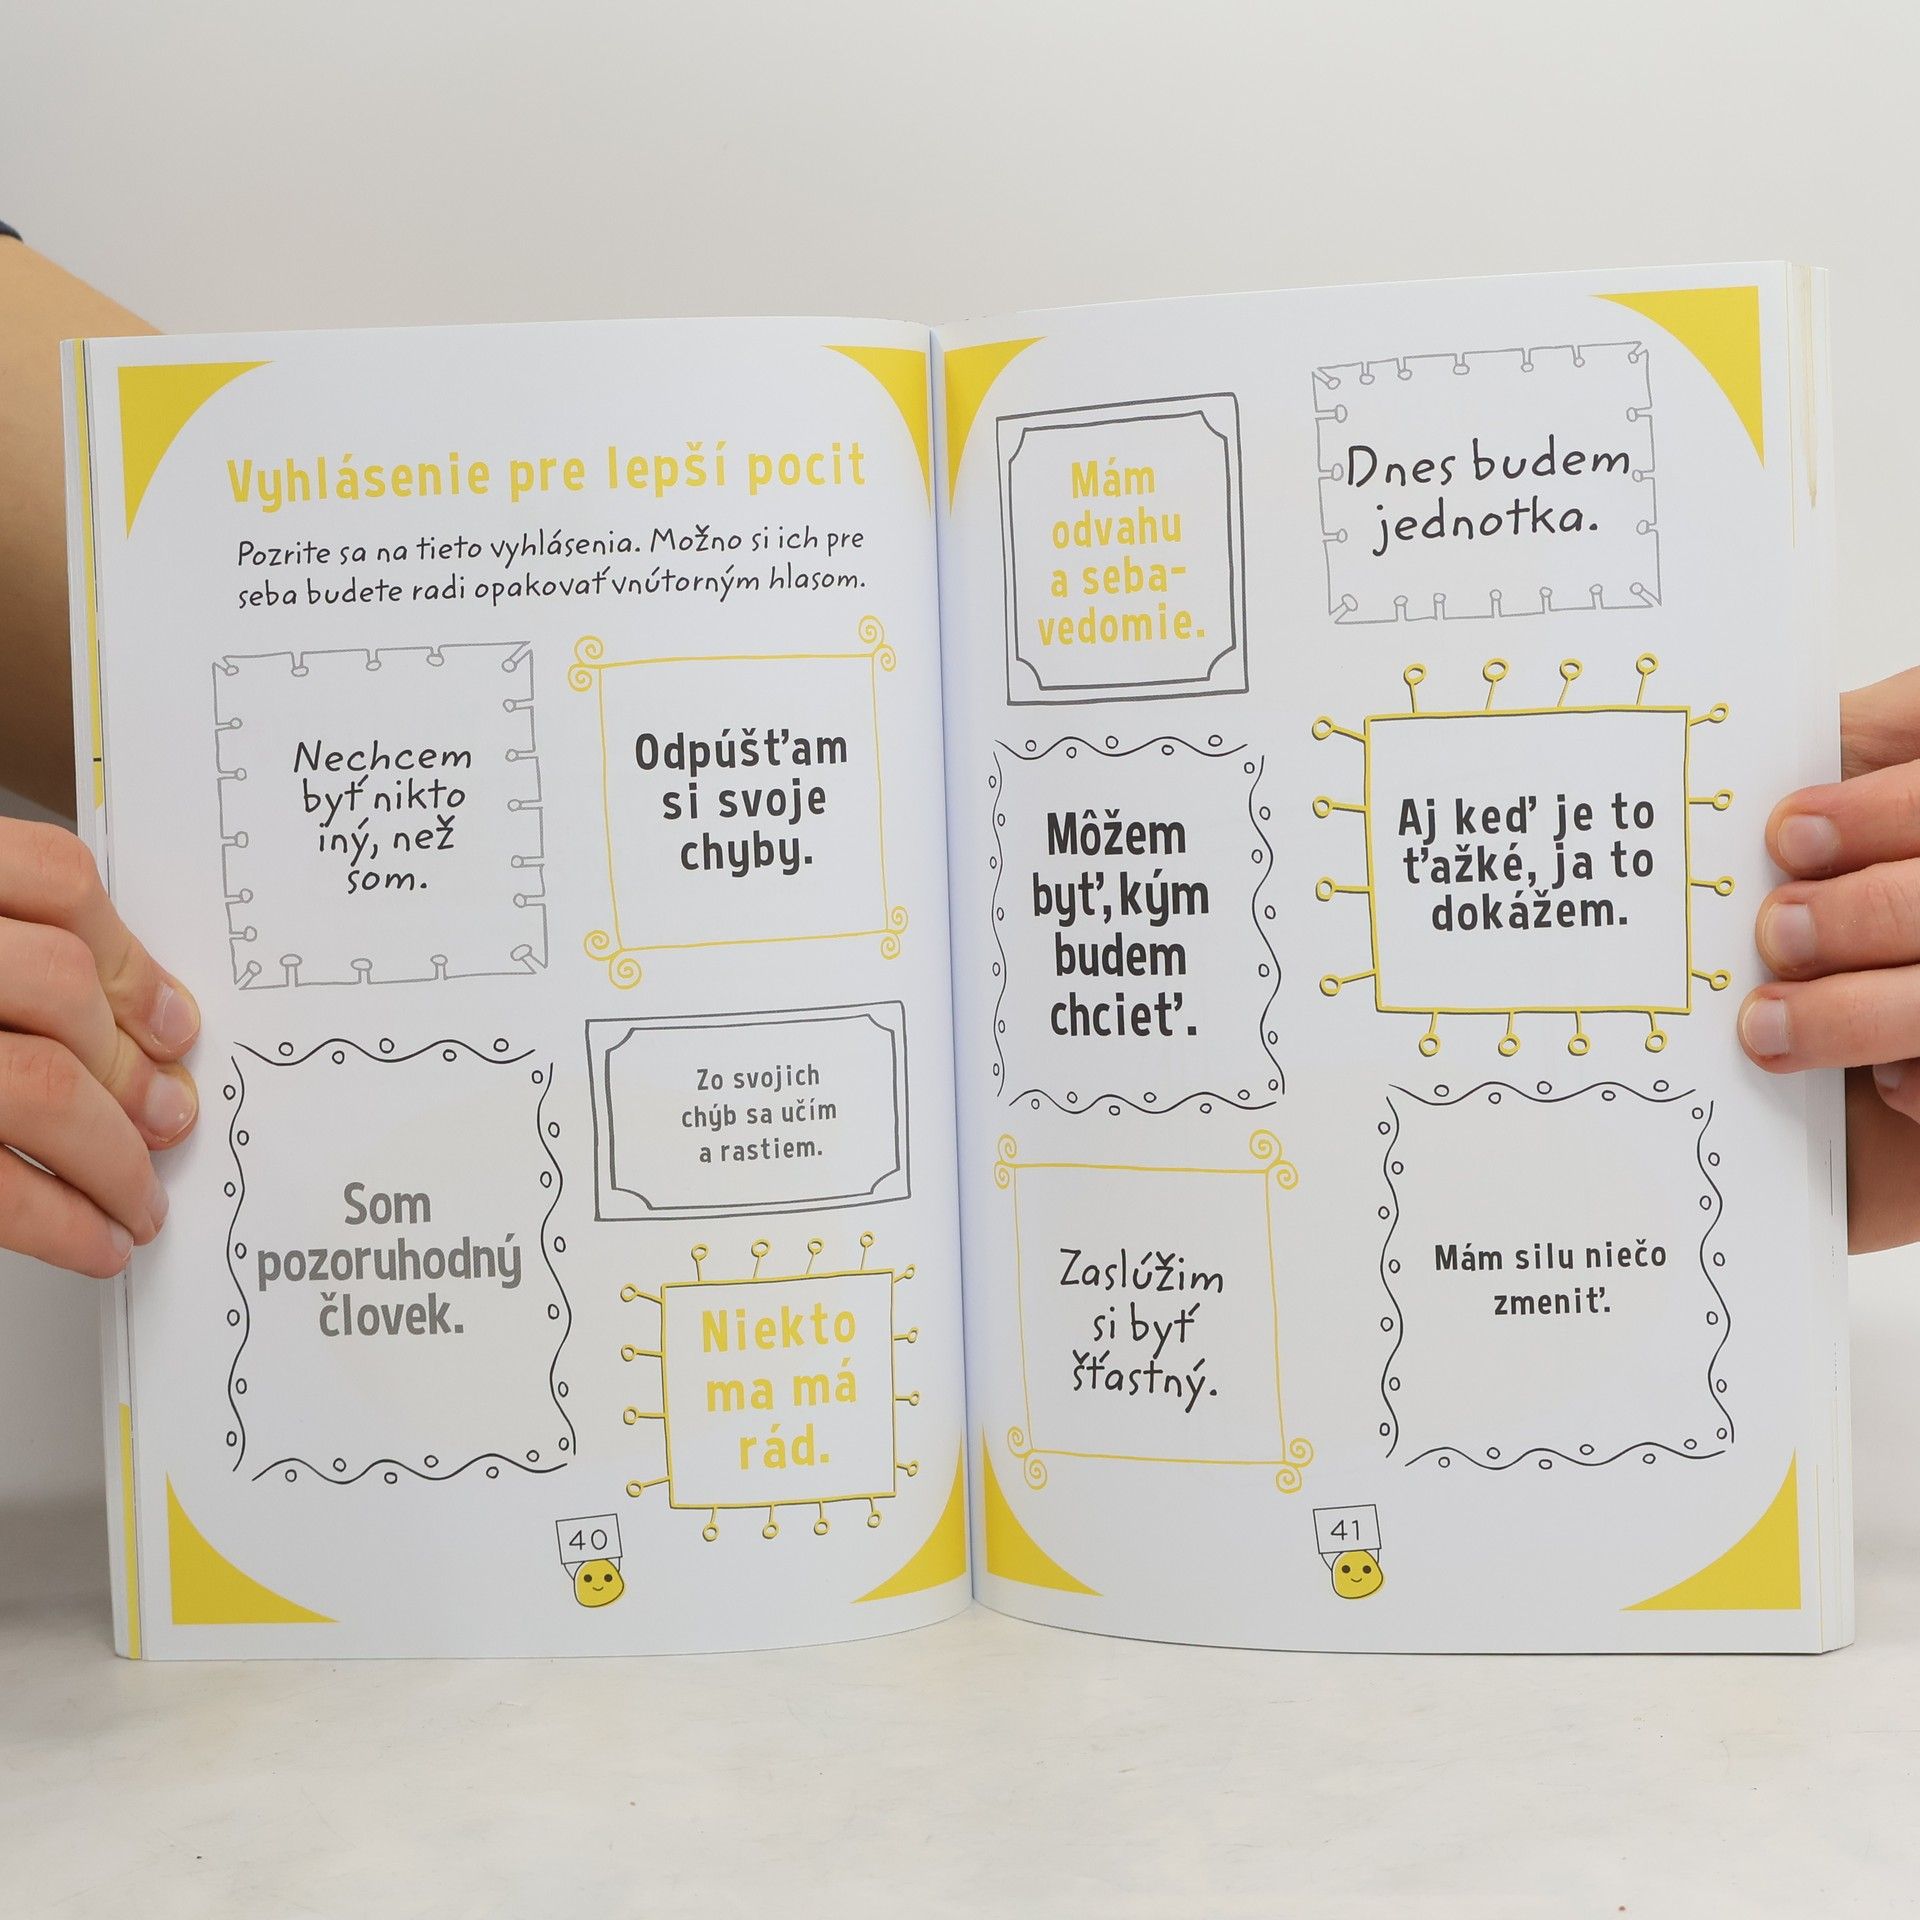 Vyhlásenie pre lepší pocit
Pozrite sa na tieto vyhlásenia. Možno si ich pre
seba budete radi opakovať vnútorným hlasom.
Nechcem
byť nikto
iný, než
som.
Odpúšťam
si svoje
chyby.
Som
pozoruhodný
človek.
Zo svojich
chýb sa učím
a rastiem.
Niekto
ma má
rád.
40
Mám
odvahu
a seba-
vedomie.
Dnes budem
jednotka.
Môžem
byť, kým
budem
chcieť.
Aj keď je to
ťažké, ja to
dokážem.
Zaslúžim
si byť
šťastný.
Mám silu niečo
zmeniť.
41